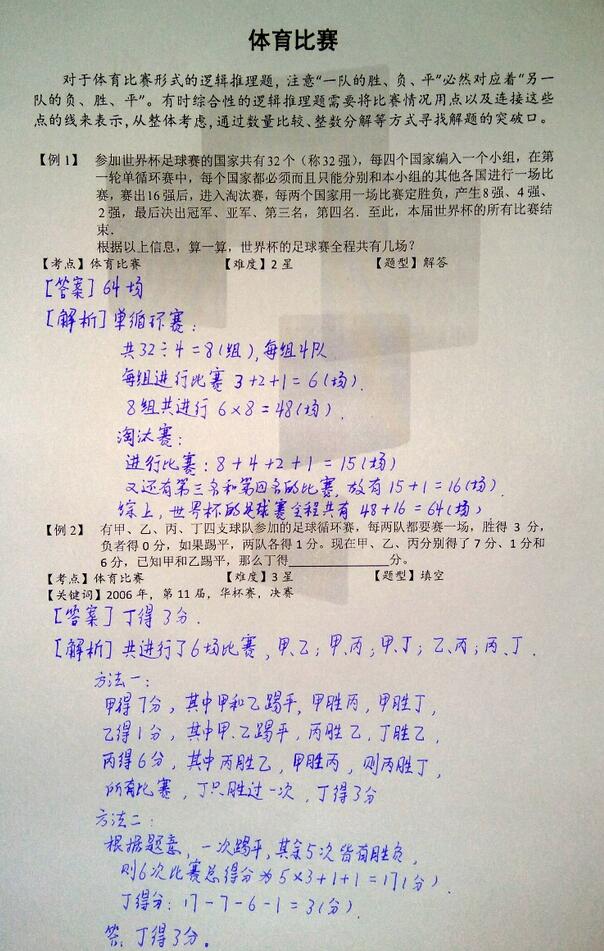 体育比赛
对于体育比赛形式的逻辑推理题，注意“一队的胜、负、平”必然对应着“另一
队的负、胜、平”。有时综合性的逻辑推理题需要将比赛情况用点以及连接这些
点的线来表示，从整体考虑，通过数量比较、整数分解等方式寻找解题的突破口。
【例 1】 参加世界杯足球赛的国家共有 32 个（称 32 强），每四个国家编入一个小组，在第
一轮单循环赛中，每个国家都必须而且只能分别和本小组的其他各国进行一场比
赛，赛出 16 强后，进入淘汰赛，每两个国家用一场比赛定胜负，产生 8 强、4 强、
2 强，最后决出冠军、亚军、第三名，第四名．至此，本届世界杯的所有比赛结
束．
根据以上信息，算一算，世界杯的足球赛全程共有几场？
【考点】体育比赛 【难度】2 星 【题型】解答
[答案] 64场
[解析] 单循环赛：
共32÷4=8(组)，每组4队
每组进行比赛 3+2+1=6(场)．
8组共进行 6×8=48(场)．
淘汰赛：
进行比赛：8+4+2+1=15(场)
又还有第三名和第四名的比赛，故有 15+1=16(场)．
综上，世界杯的足球赛全程共有 48+16=64(场)
【例 2】 有甲、乙、丙、丁四支球队参加的足球循环赛，每两队都要赛一场，胜得 3 分，
负者得 0 分，如果踢平，两队各得 1 分。现在甲、乙、丙分别得了 7 分、1 分和
6 分，已知甲和乙踢平，那么丁得____________分。
【考点】体育比赛 【难度】3 星 【题型】填空
【关键词】2006 年，第 11 届，华杯赛，决赛
[答案] 丁得 3分．
[解析] 共进行了6场比赛，甲、乙；甲、丙；甲、丁；乙、丙；丙、丁．
方法一：
甲得7分，其中甲和乙踢平，甲胜丙，甲胜丁，
乙得1分，其中甲、乙踢平，丙胜乙，丁胜乙，
丙得6分，其中丙胜乙，甲胜丙，则丙胜丁，
所有比赛，丁只胜过一次，丁得3分
方法二：
根据题意，一次踢平，其余5次皆有胜负，
则6次比赛总得分为 5×3+1+1=17(分)．
丁得分：17-7-6-1=3(分)．
答：丁得3分。